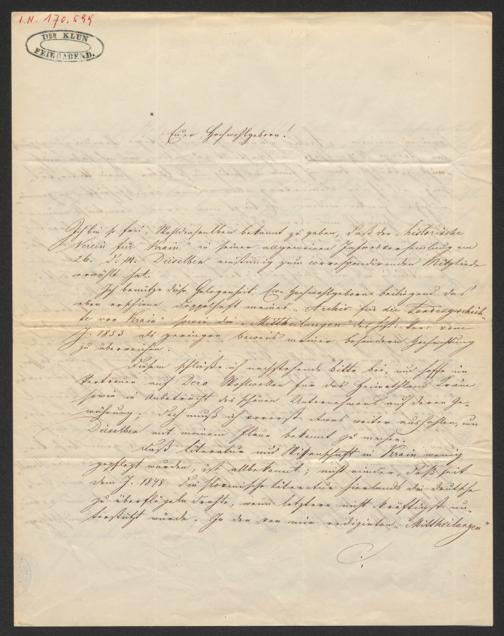 I.N. 170.699
DER KLUN
FEIERABEND.
Euer Hochwohlgeboren!
Ich bin so frei, Wohldenselben bekannt zu geben, daß der „historische
Verein für Krain" in seiner allgemeinen Jahresversammlung am
26. d. M. Dieselben einstimmig zum correspondirenden Mitgliede
erwählt hat.
Ich benütze diese Gelegenheit, Euer Hochwohlgeboren beiliegend das
eben erschienene Doppelheft meines „Archiv für die Landesgeschich-
te von Krain" sowie die „Mittheilungen" des histor. Ver. vom
J. 1853 als geringen Beweis meiner besonderen Hochachtung
zu überreichen.
Diesem schließe ich nachstehende Bitte bei, und hoffe im
Vertrauen auf Dero Wohlwollen für das Heimathland Krain
sowie in Anbetracht des schönen Unternehmens auf deren Ge-
währung. Doch muß ich vorerst etwas weiter ausholen, um
Dieselben mit meinem Plane bekannt zu machen.
Daß Literatur und Wissenschaft in Krain wenig
gepflegt wurden, ist allbekannt; nicht minder, daß seit
dem J. 1848 die slovenische Literatur hierlands die deutsche
zu überflügeln drohte, wenn letztere nicht kräftigst un-
terstützt würde. In den von mir redigirten „Mittheilungen"